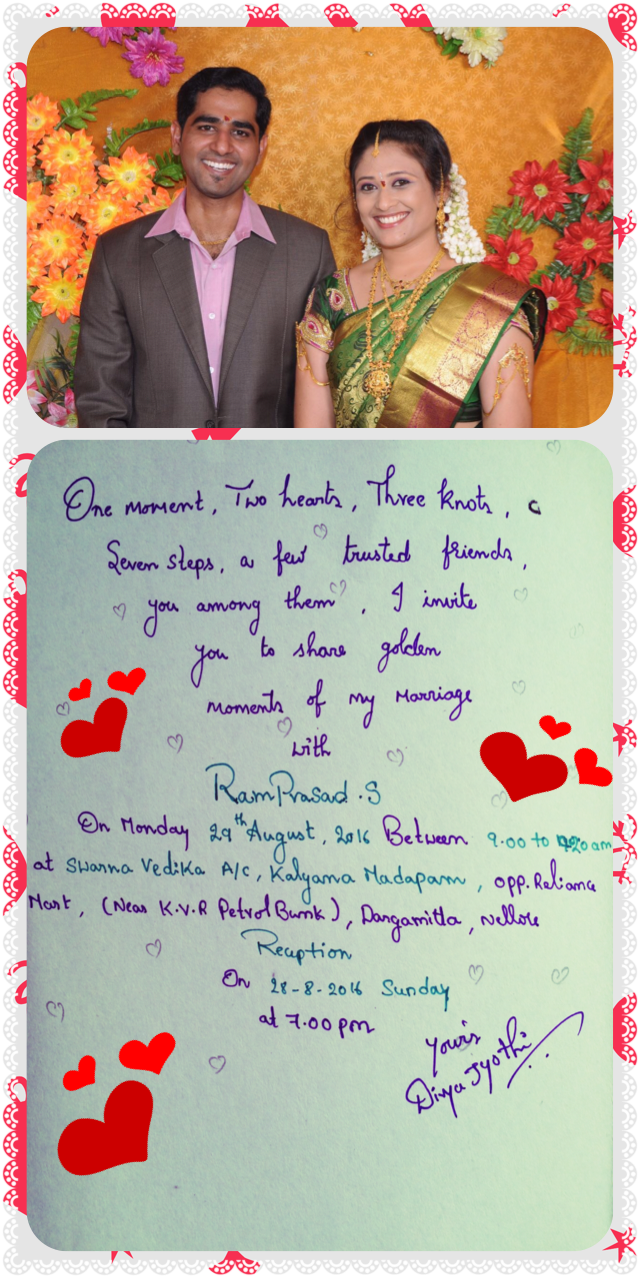 One moment, Two hearts, Three knots,
Seven steps, a few trusted friends,
you among them, I invite
you to share golden
moments of my Marriage
with
RamPrasad.S
On Monday 29th August, 2016 Between 9.00 to
at Swarna Vedika A/C, Kalyana Madapam, opp. Reliance
Mart, (Near K.V.R Petrol Bunk), Dargamitta, Nellore
Reception
On 28-8-2016 Sunday
at 7.00 pm
Yours
Divya Jyothi